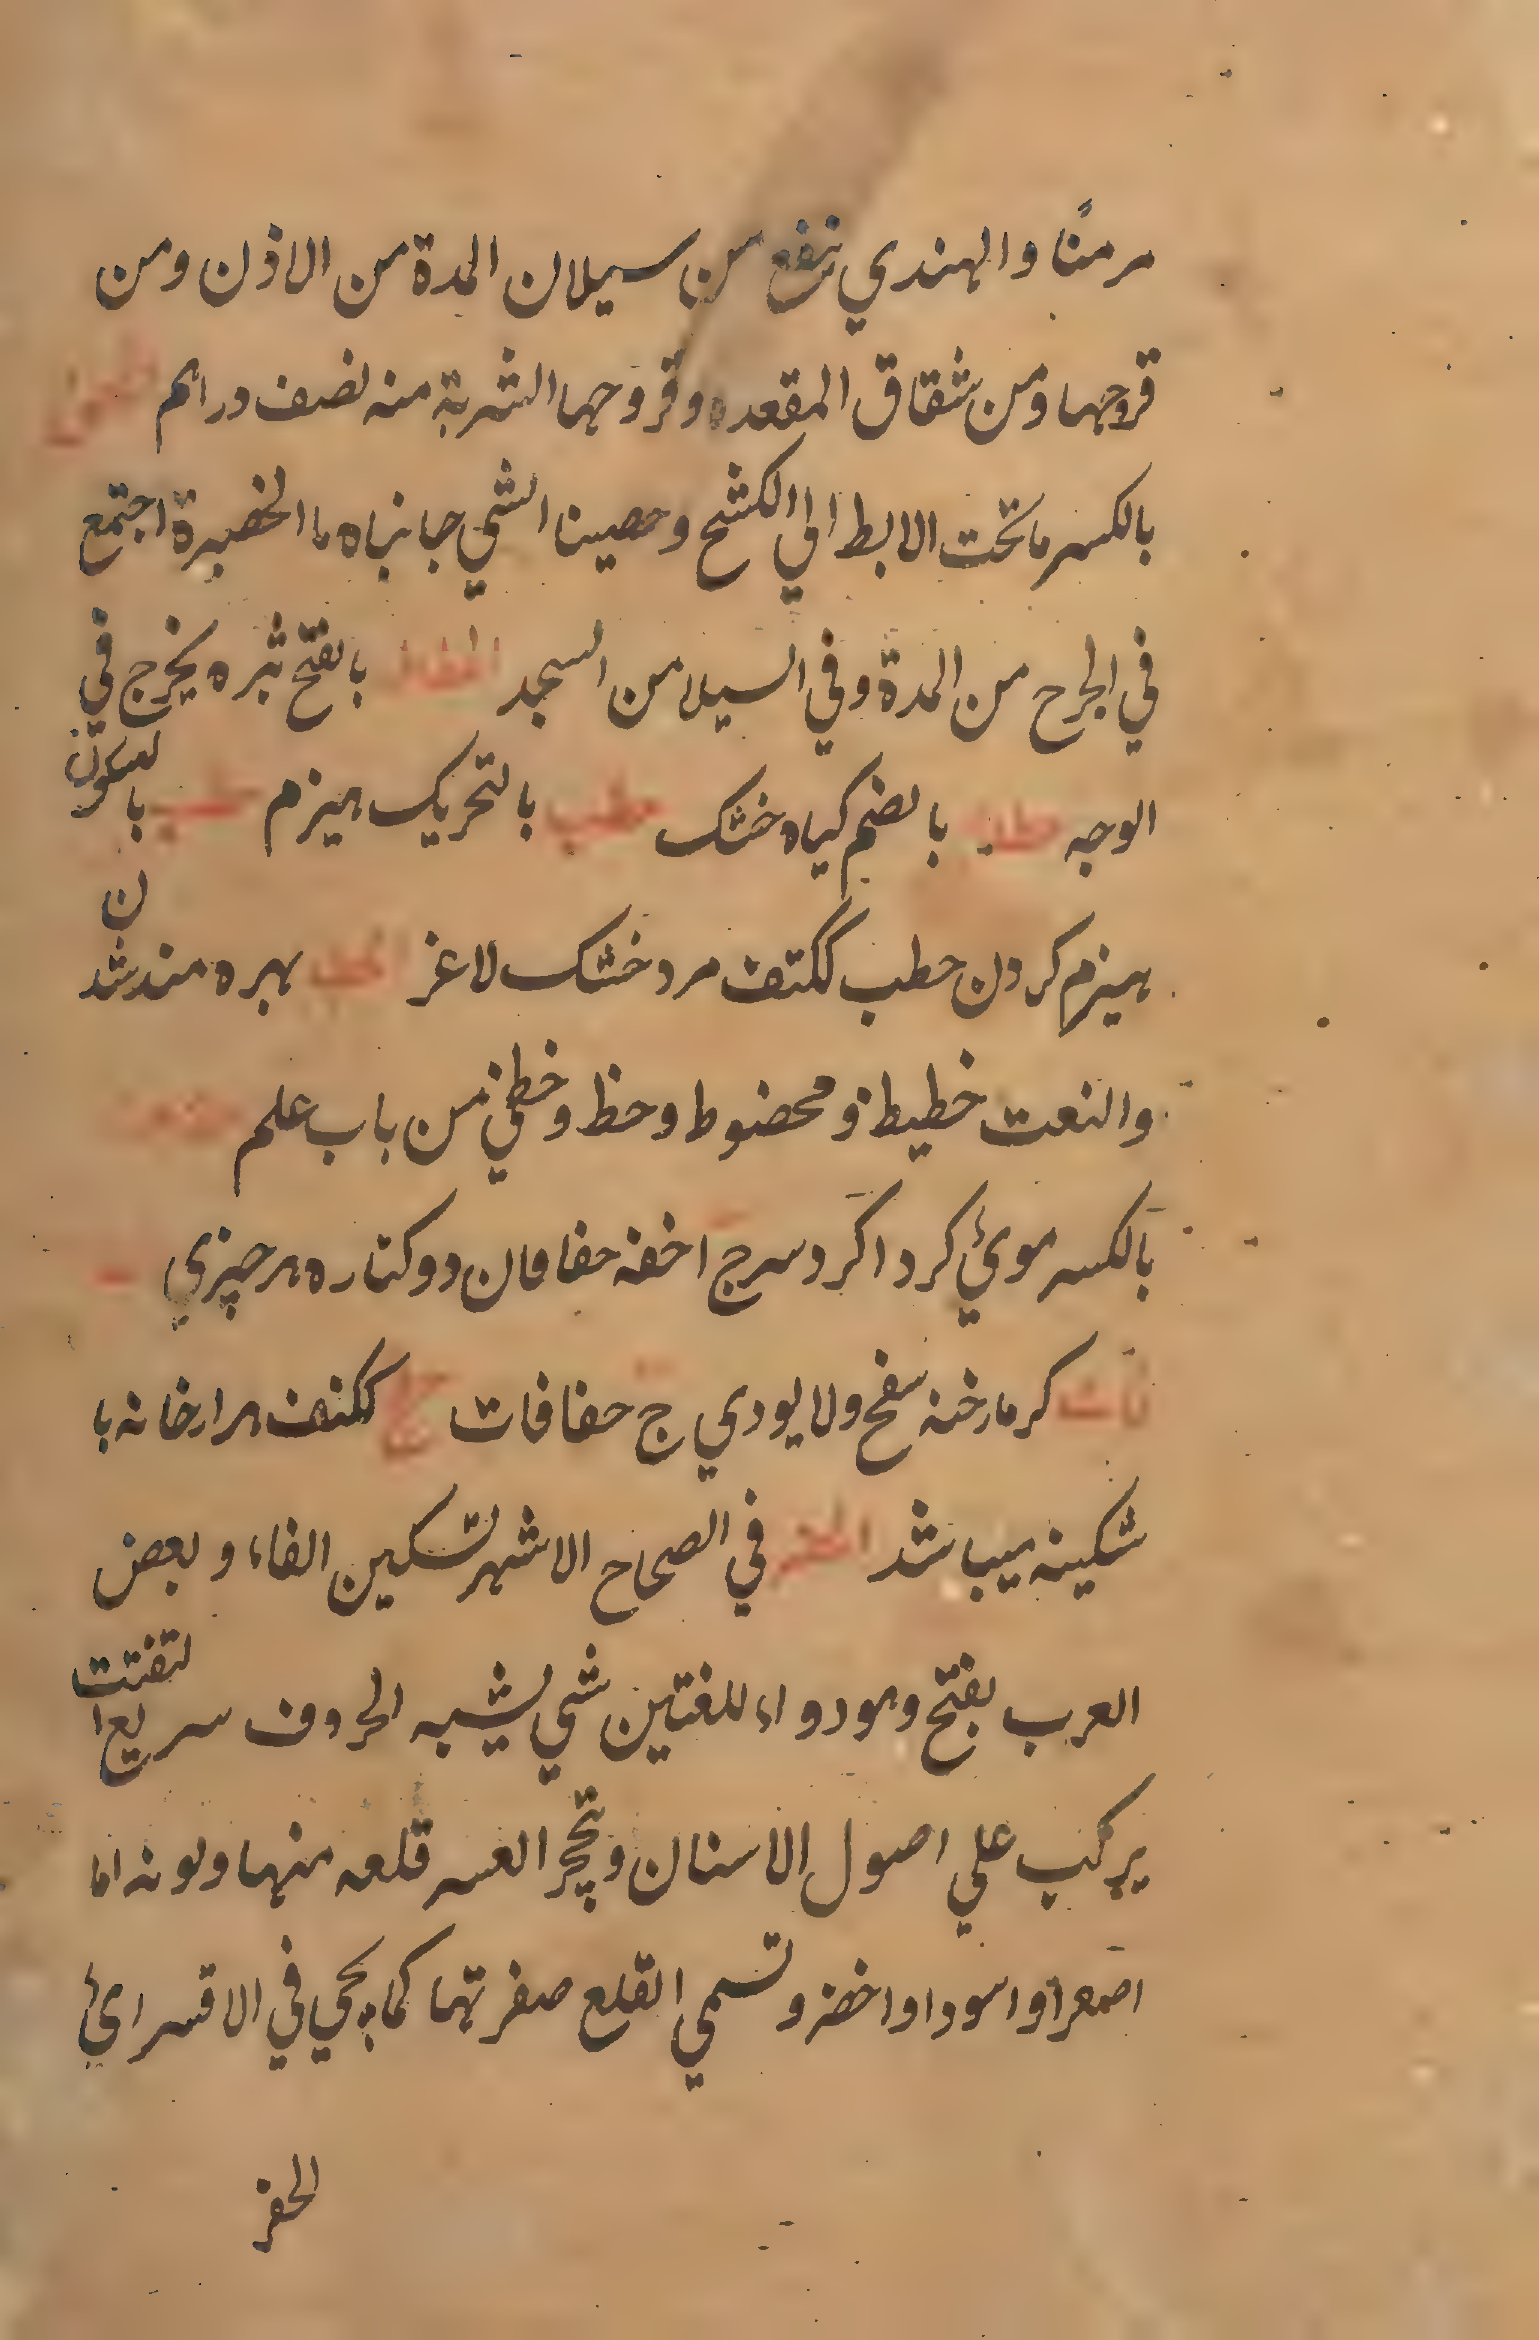 مرمنًا والهندي ينفع من سيلان المدة من الاذن ومن
قروحها ومن شقاق المقعده وقروحها الشربة منه نصف دراهم
بالكسر ماتحت الابط الي الكشح وحصينا الشي جانباه ما الخضيرة اجتمع
في الجرح من المدة وفي السيلا من السجد بالفتح بثره يخرج في
الوجه بالضم كياه خشك حطب بالتحريك هيزم حطب بالسكون
هيزم كردن حطب ككتف مرد خشك لاغر بهره مند شدن
والنعت خطيظ ومحضوظ وحظ وخطي من باب علم
بالكسر موئ كرد اكرد سرج اخفه حفافان دو كناره هر چيزي
كرمارخنه سفح ولا يودي ج حفافات ككنف هرارخانه با
شكينه ميباشد الحفر في الصحاح الاشهر تسكين الفاء وبعض
العرب بفتح وهودواء للغتين شي يشبه الخروف سريع التفتت
يركب علي اصول الاسنان ويتحجر العسر قلعه منها ولونه اما
اصفر او اسود او اخضر وتسمي القلع صفرتها كما يجي في الاقسرائ
الحفر